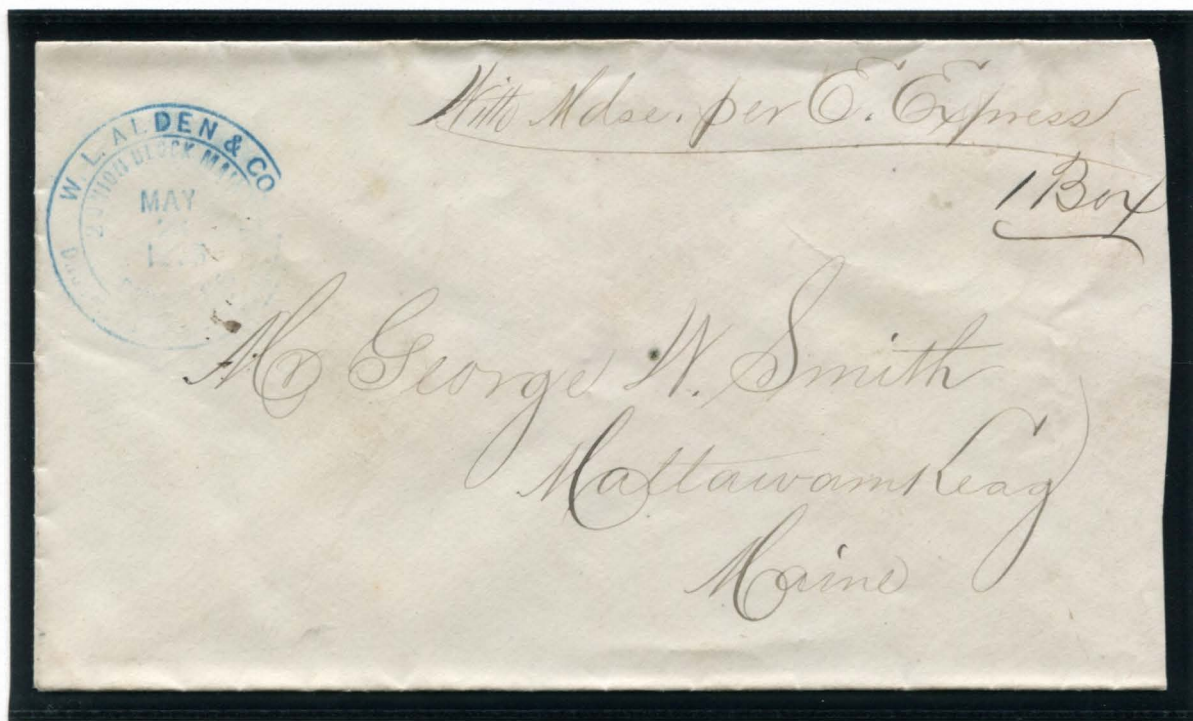 With Mdse. per E. Express
1 Box
W. L. ALDEN & CO
UNION BLOCK
MAY
Mr George W. Smith
Mattawamkeag
Maine